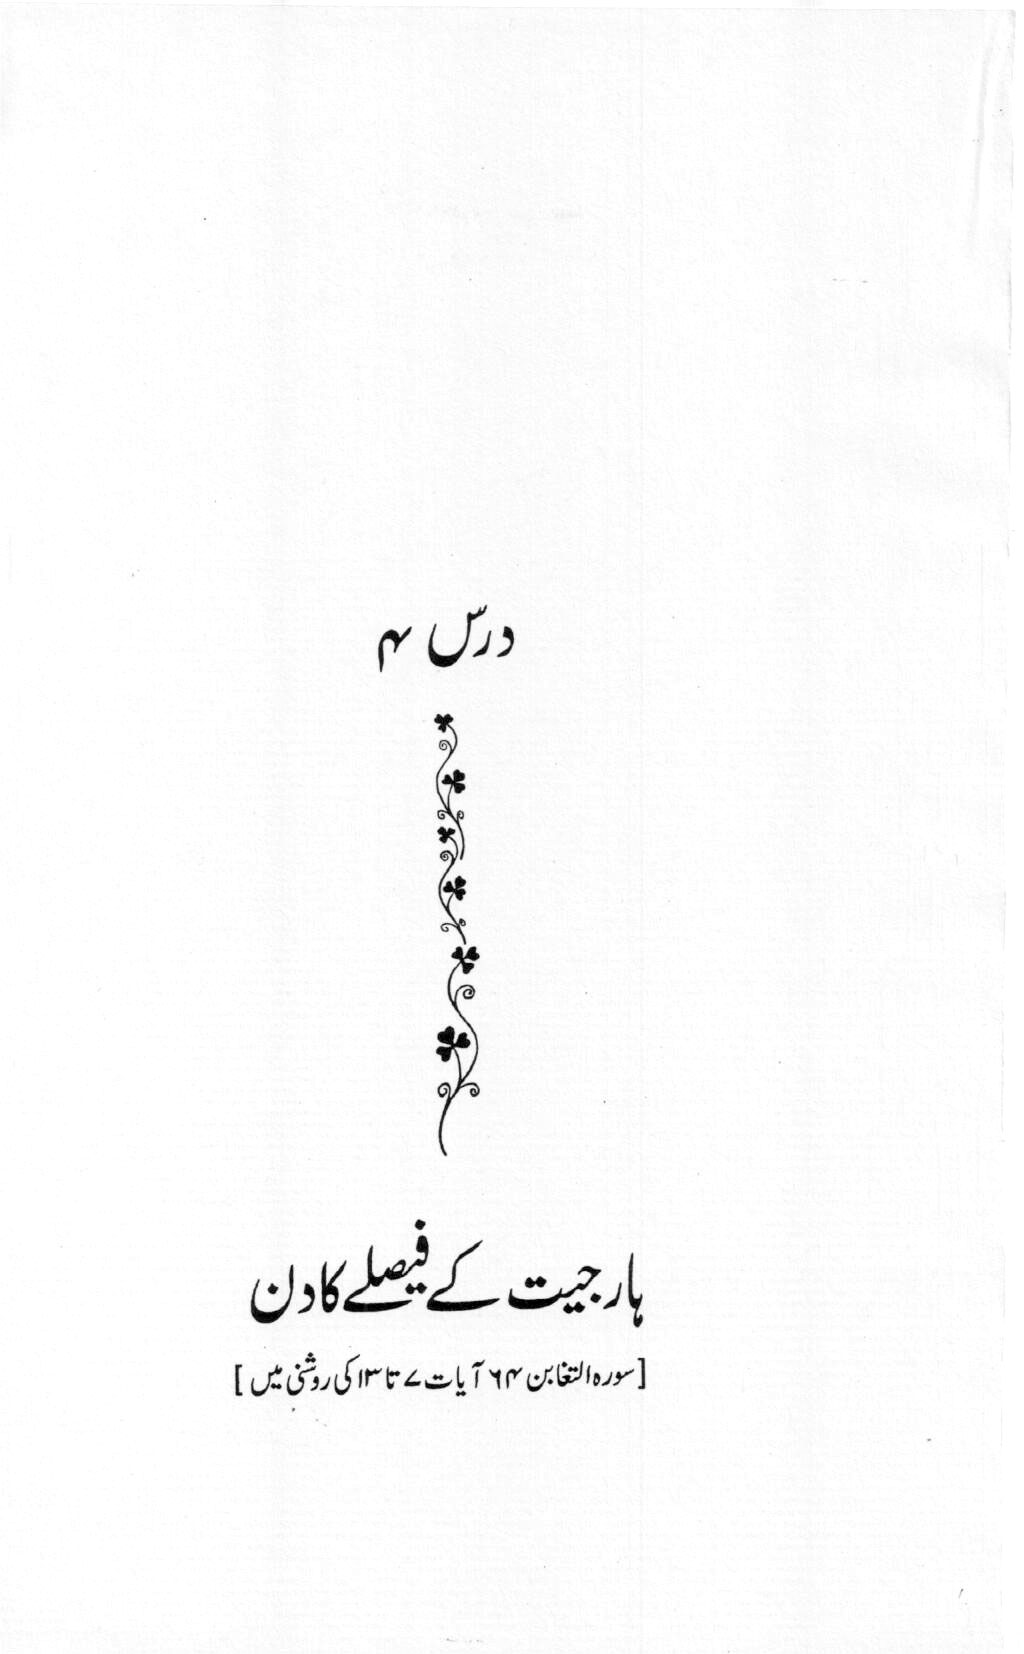 درس ۴
ہار جیت کے فیصلے کا دن
[سورہ التغابن ۶۴ آیات ۷ تا ۱۳ کی روشنی میں]